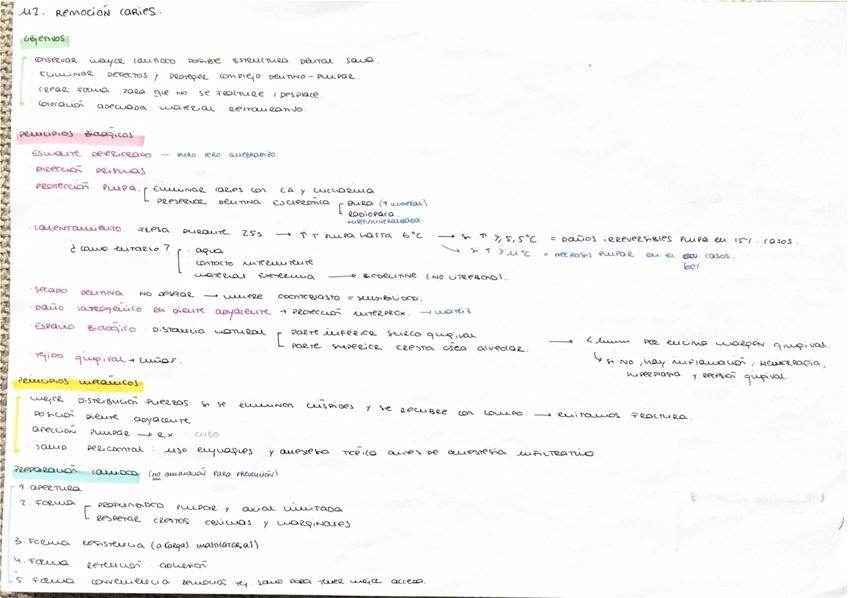 U2. REMOCIÓN CARIES.
OBJETIVOS
· CONSERVAR MAYOR CANTIDAD POSIBLE ESTRUCTURA DENTAL SANA.
· ELIMINAR DEFECTOS Y PROTEGER COMPLEJO DENTINO-PULPAR.
· CREAR FORMA PARA QUE NO SE FRACTURE / DESPLACE.
· COLOCACIÓN ADECUADA MATERIAL RESTAURATIVO.
PRINCIPIOS BIOLÓGICOS
· ESMALTE DESMINERALIZADO — DURO PERO QUEBRADIZO.
· DIRECCIÓN PRISMAS
· PROTECCIÓN PULPA. ELIMINAR CARIES CON CA Y CUCHARILLA
PRESERVAR DENTINA ESCLERÓTICA DURA (↑ MINERAL)
RADIOPACA
HIPERMINERALIZADA
· CALENTAMIENTO FRESA DURANTE 25s → ↑T PULPA HASTA 6°C → si ↑ ≥ 5,5°C = DAÑOS IRREVERSIBLES PULPA EN 15% CASOS.
¿CÓMO EVITARLO? · AGUA → si ↑ > 11°C = NECROSIS PULPAR EN EL CASOS.
60%
CONTACTO INTERMITENTE
MATERIAL EXTERNO → BIODENTINE (NO VITREBOND).
· SECADO DENTINA NO DESECAR → MUERE ODONTOBLASTO = SENSIBILIDAD.
· DAÑO IATROGÉNICO EN DIENTE ADYACENTE → PROTECCIÓN INTERPROX. → MATRIZ
· ESPACIO BIOLÓGICO DISTANCIA NATURAL PARTE INFERIOR SURCO GINGIVAL
PARTE SUPERIOR CRESTA ÓSEA ALVEOLAR. → POR ENCIMA MARGEN GINGIVAL.
SI NO, HAY INFLAMACIÓN, HEMORRAGIA,
HIPERPLASIA Y RECESIÓN GINGIVAL.
· TEJIDO GINGIVAL → CUÑAS.
PRINCIPIOS MECÁNICOS
· MEJOR DISTRIBUCIÓN FUERZAS SI SE ELIMINAN CÚSPIDES Y SE RECUBRE CON COMPO → EVITAMOS FRACTURA.
· POSICIÓN DIENTE ADYACENTE
· AFECCIÓN PULPAR → RX · ENDO
· SALUD PERIODONTAL: USO ENJUAGUES Y ANESTESIA TÓPICA ANTES DE ANESTESIA INFILTRATIVA
PREPARACIÓN CAVIDAD (NO AMPLIACIÓN PARA PREVENCIÓN)
1. APERTURA
2. FORMA PROFUNDIDAD PULPAR Y AXIAL LIMITADA
RESPETAR CRESTAS OBLICUAS Y MARGINALES
3. FORMA RESISTENCIA (A CARGAS MASTICATORIAS)
4. FORMA RETENCIÓN ADHESIÓN
5. FORMA CONVENIENCIA REMOVER TEJ. SANO PARA TENER MEJOR ACCESO.